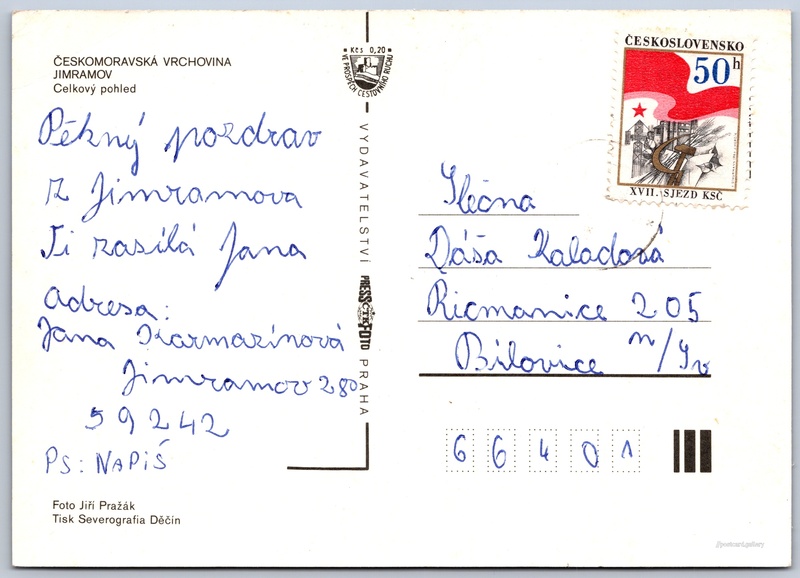 ČESKOMORAVSKÁ VRCHOVINA
JIMRAMOV
Celkový pohled
Pěkný pozdrav
z Jimramova
Ti zasílá Jana
Adresa:
Jana Karmazínová
Jimramov 280
59242
PS: NAPIŠ
Foto Jiří Pražák
Tisk Severografia Děčín
Kčs 0,20
VE PROSPĚCH CESTOVNÍHO RUCHU
VYDAVATELSTVÍ PRESSFOTO PRAHA
ČTK
ČESKOSLOVENSKO
50h
XVII. SJEZD KSČ
Slečna
Dáša Kaladová
Řicmanice 205
Bílovice n/Sv
66401